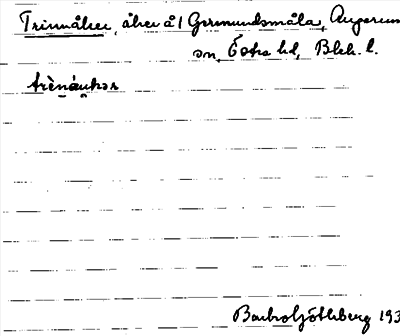 Trinnåker, åker å 1 Germundsmåla, Augerum
sn, Östra hd, Blek. l.
trènåukər
Barbro Göthberg 193